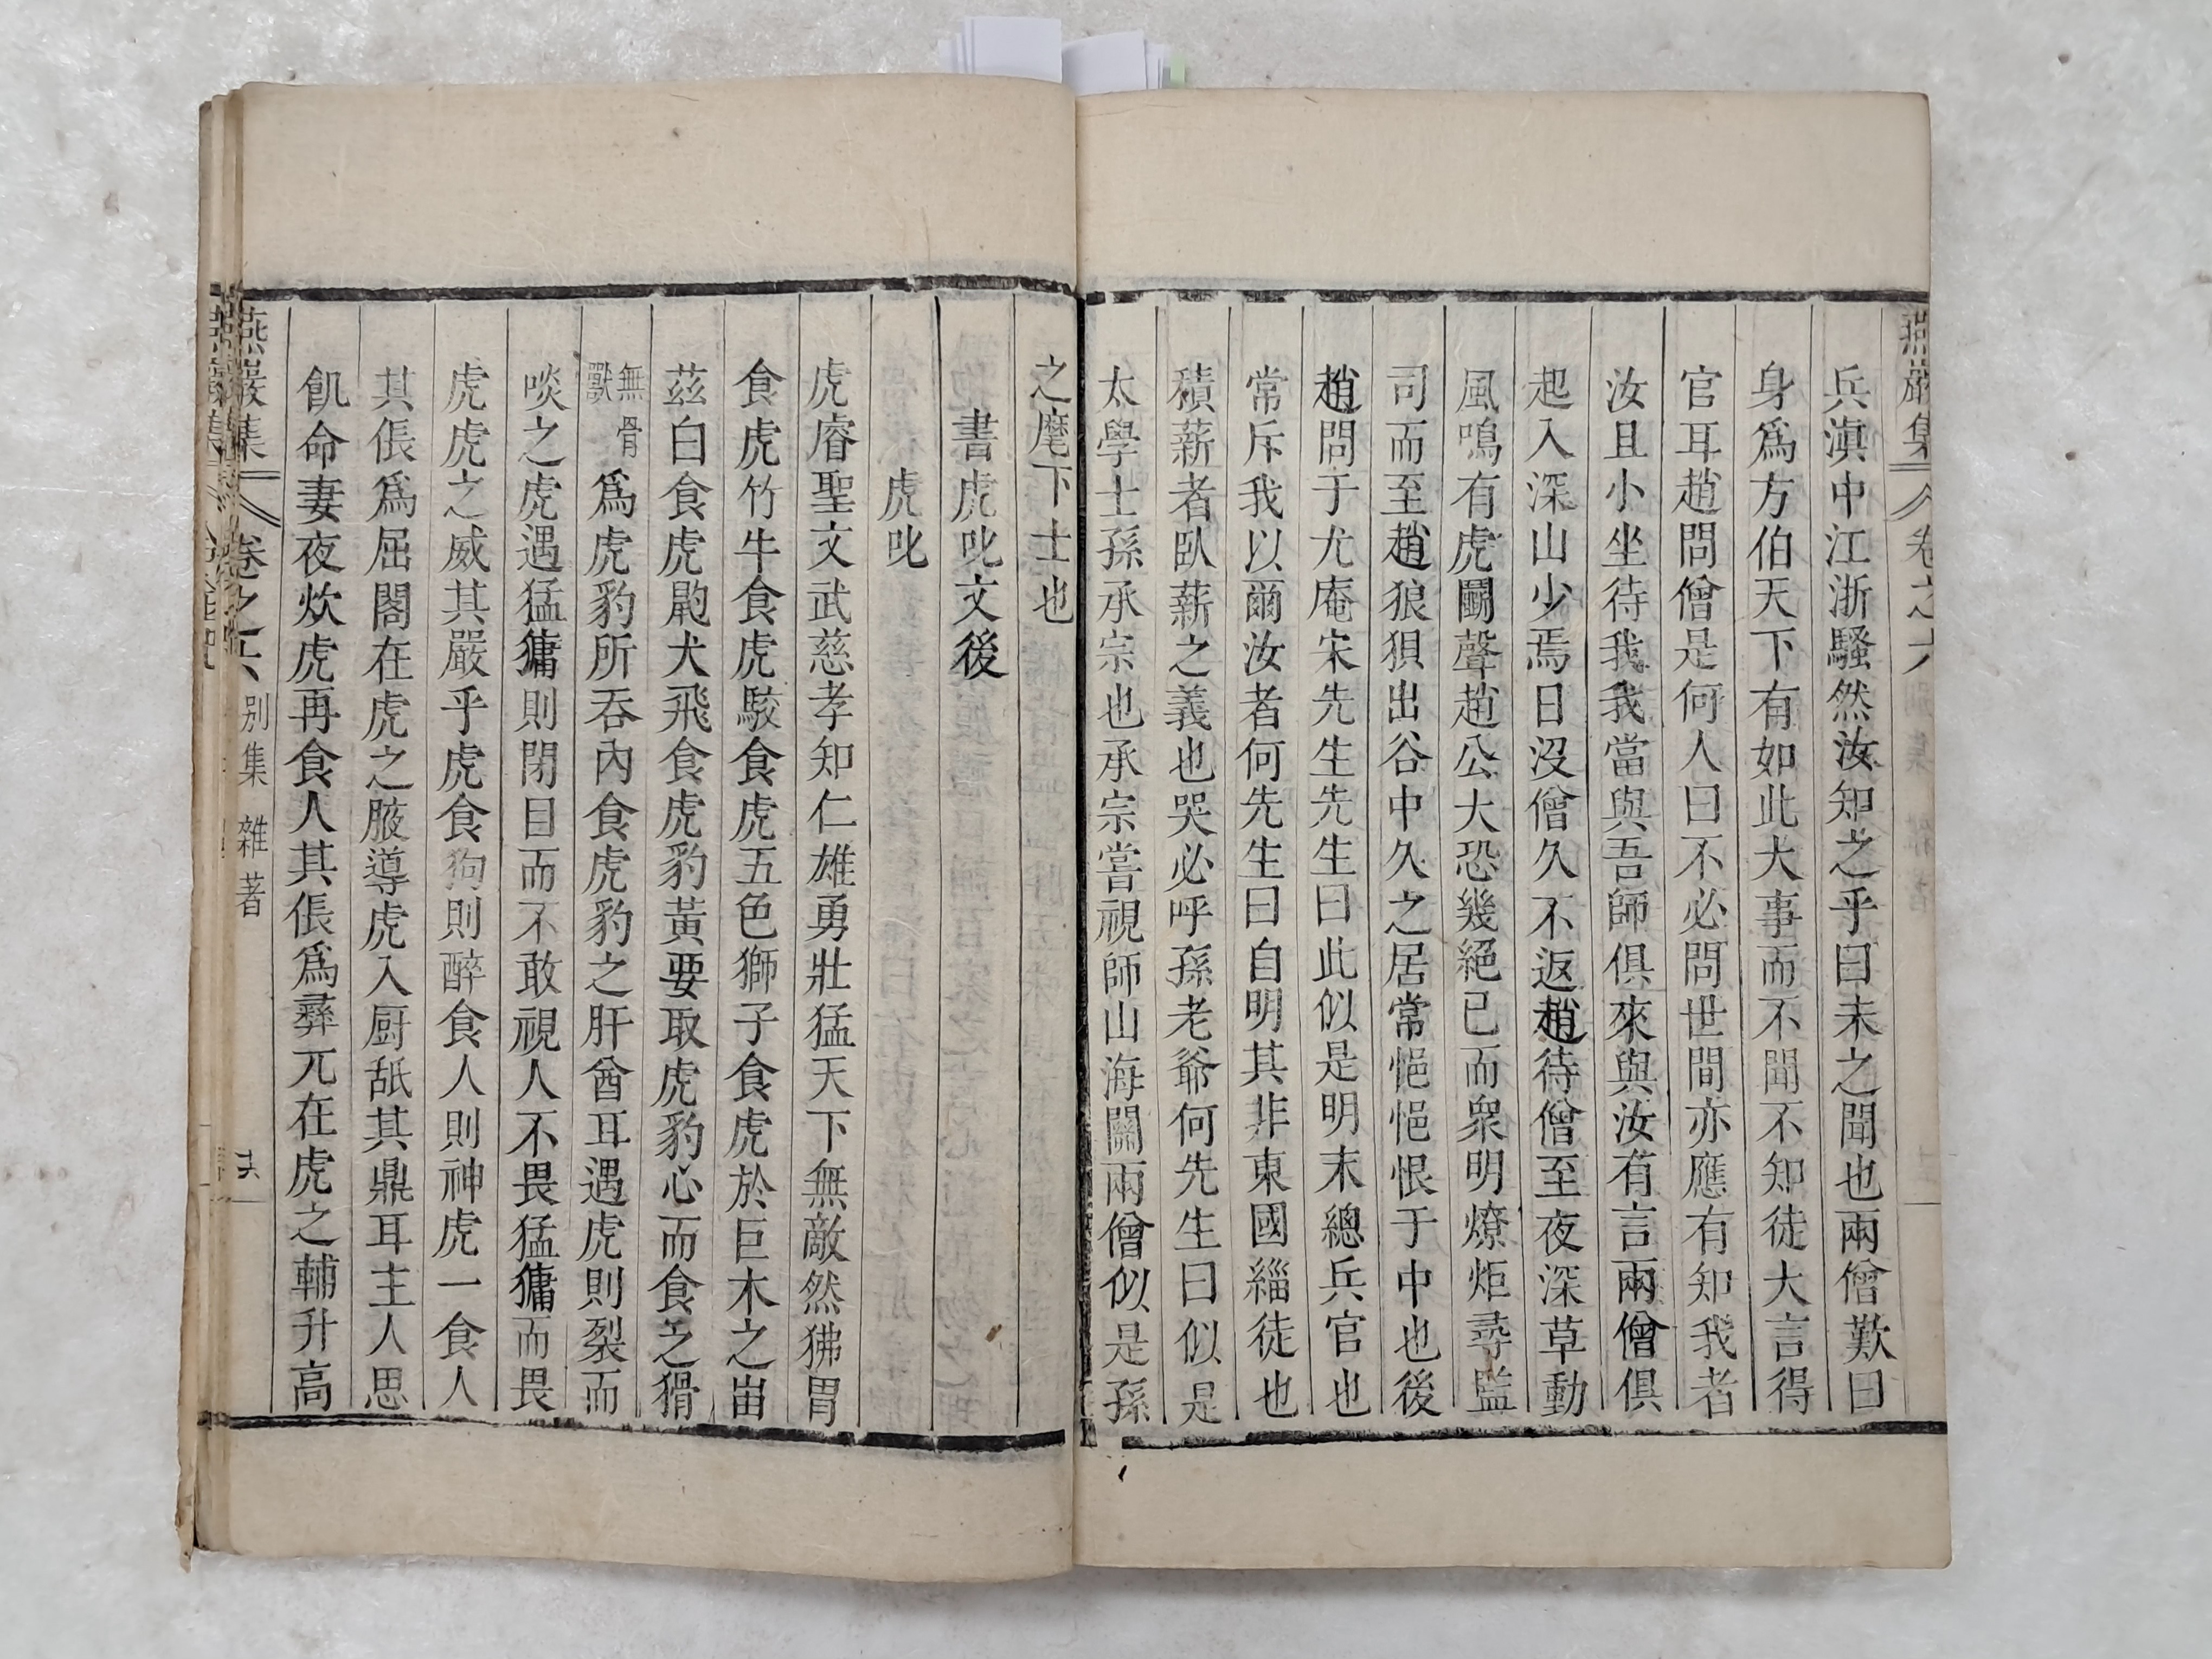 燕巖集 卷之六
兵滇中江浙騷然汝知之乎曰未之聞也兩僧歎曰
身爲方伯天下有如此大事而不聞不知徒大言得
官耳趙問僧是何人曰不必問世間亦應有知我者
汝且小坐待我我當與吾師俱來與汝有言兩僧俱
起入深山少焉日沒僧久不返趙待僧至夜深草動
風鳴有虎鬭聲趙公大恐幾絕已而衆明燎炬尋監
司而至趙狼狽出谷中久之居常悒悒恨于中也後
趙問于尤庵宋先生先生曰此似是明末總兵官也
常斥我以爾汝者何先生曰自明其非東國緇徒也
積薪者臥薪之義也哭必呼孫老爺何先生曰似是
太學士孫承宗也承宗嘗視師山海關兩僧似是孫
之麾下士也
書虎叱文後
虎叱
虎睿聖文武慈孝知仁雄勇壯猛天下無敵然狒胃
食虎竹牛食虎駮食虎五色獅子食虎於巨木之岫
茲白食虎䶂犬飛食虎豹黃要取虎豹心而食之猾
無骨獸
爲虎豹所吞內食虎豹之肝酋耳遇虎則裂而
啖之虎遇猛㺎則閉目而不敢視人不畏猛㺎而畏
虎虎之威其嚴乎虎食狗則醉食人則神虎一食人
其倀爲屈閣在虎之腋導虎入厨舐其鼎耳主人思
飢命妻夜炊虎再食人其倀爲彛兀在虎之輔升高
燕巖集 卷之六 別集 雜著